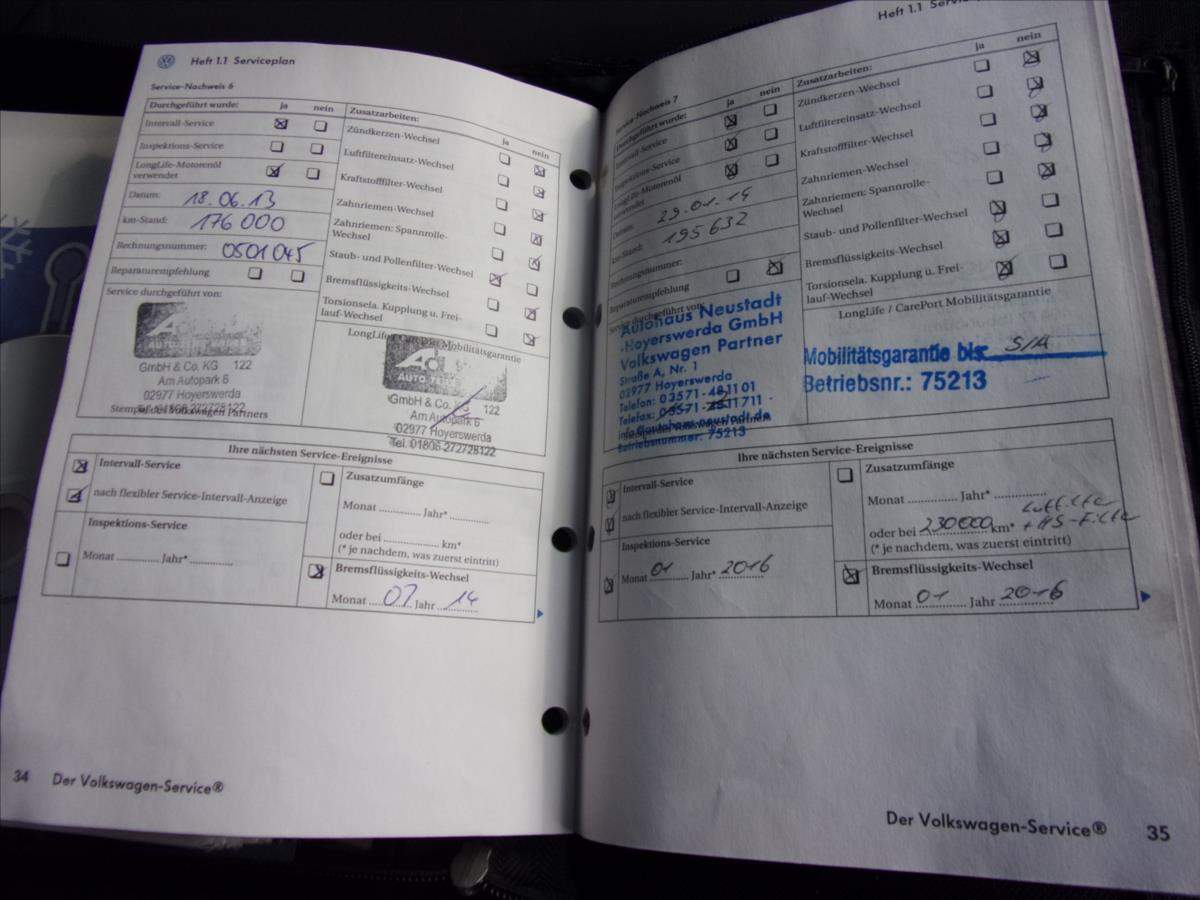 Heft 1.1 Serviceplan
Service-Nachweis 6
Durchgeführt wurde: ja nein
Intervall-Service
Inspektions-Service
LongLife-Motorenöl
verwendet
Datum: 18.06.13
km-Stand: 176 000
Rechnungsnummer: 0501045
Reparaturempfehlung
Service durchgeführt von:
GmbH & Co. KG 122
Am Autopark 6
02977 Hoyerswerda
Stempel des Volkswagen Partners
Zusatzarbeiten:
ja nein
Zündkerzen-Wechsel
Luftfiltereinsatz-Wechsel
Kraftstofffilter-Wechsel
Zahnriemen-Wechsel
Zahnriemen: Spannrolle-
Wechsel
Staub- und Pollenfilter-Wechsel
Bremsflüssigkeits-Wechsel
Torsionsela. Kupplung u. Frei-
lauf-Wechsel
LongLife / CarePort Mobilitätsgarantie
GmbH & Co. KG 122
Am Autopark 6
02977 Hoyerswerda
Tel. 01806-272728122
Ihre nächsten Service-Ereignisse
Intervall-Service
nach flexibler Service-Intervall-Anzeige
Inspektions-Service
Monat Jahr*
Zusatzumfänge
Monat Jahr*
oder bei km*
(* je nachdem, was zuerst eintritt)
Bremsflüssigkeits-Wechsel
Monat 07 Jahr 14
34 Der Volkswagen-Service®
Heft 1.1
Service-Nachweis 7
Durchgeführt wurde: ja nein
Intervall-Service
Inspektions-Service
LongLife-Motorenöl
verwendet
Datum: 29.01.14
km-Stand: 195632
Rechnungsnummer:
Reparaturempfehlung
Service durchgeführt von:
Autohaus Neustadt
-Hoyerswerda GmbH
Volkswagen Partner
Straße A, Nr. 1
02977 Hoyerswerda
Telefon: 03571-481101
info@autohaus-neustadt.de
Stempel des Volkswagen Partners
Betriebsnummer: 75213
Zusatzarbeiten:
ja nein
Zündkerzen-Wechsel
Luftfiltereinsatz-Wechsel
Kraftstofffilter-Wechsel
Zahnriemen-Wechsel
Zahnriemen: Spannrolle-
Wechsel
Staub- und Pollenfilter-Wechsel
Bremsflüssigkeits-Wechsel
Torsionsela. Kupplung u. Frei-
lauf-Wechsel
LongLife / CarePort Mobilitätsgarantie
Mobilitätsgarantie bis
Betriebsnr.: 75213
Ihre nächsten Service-Ereignisse
Intervall-Service
nach flexibler Service-Intervall-Anzeige
Inspektions-Service
Monat 01 Jahr* 2016
Zusatzumfänge
Monat Jahr*
oder bei 230000 km*
(* je nachdem, was zuerst eintritt)
Bremsflüssigkeits-Wechsel
Monat 01 Jahr 2016
Der Volkswagen-Service® 35